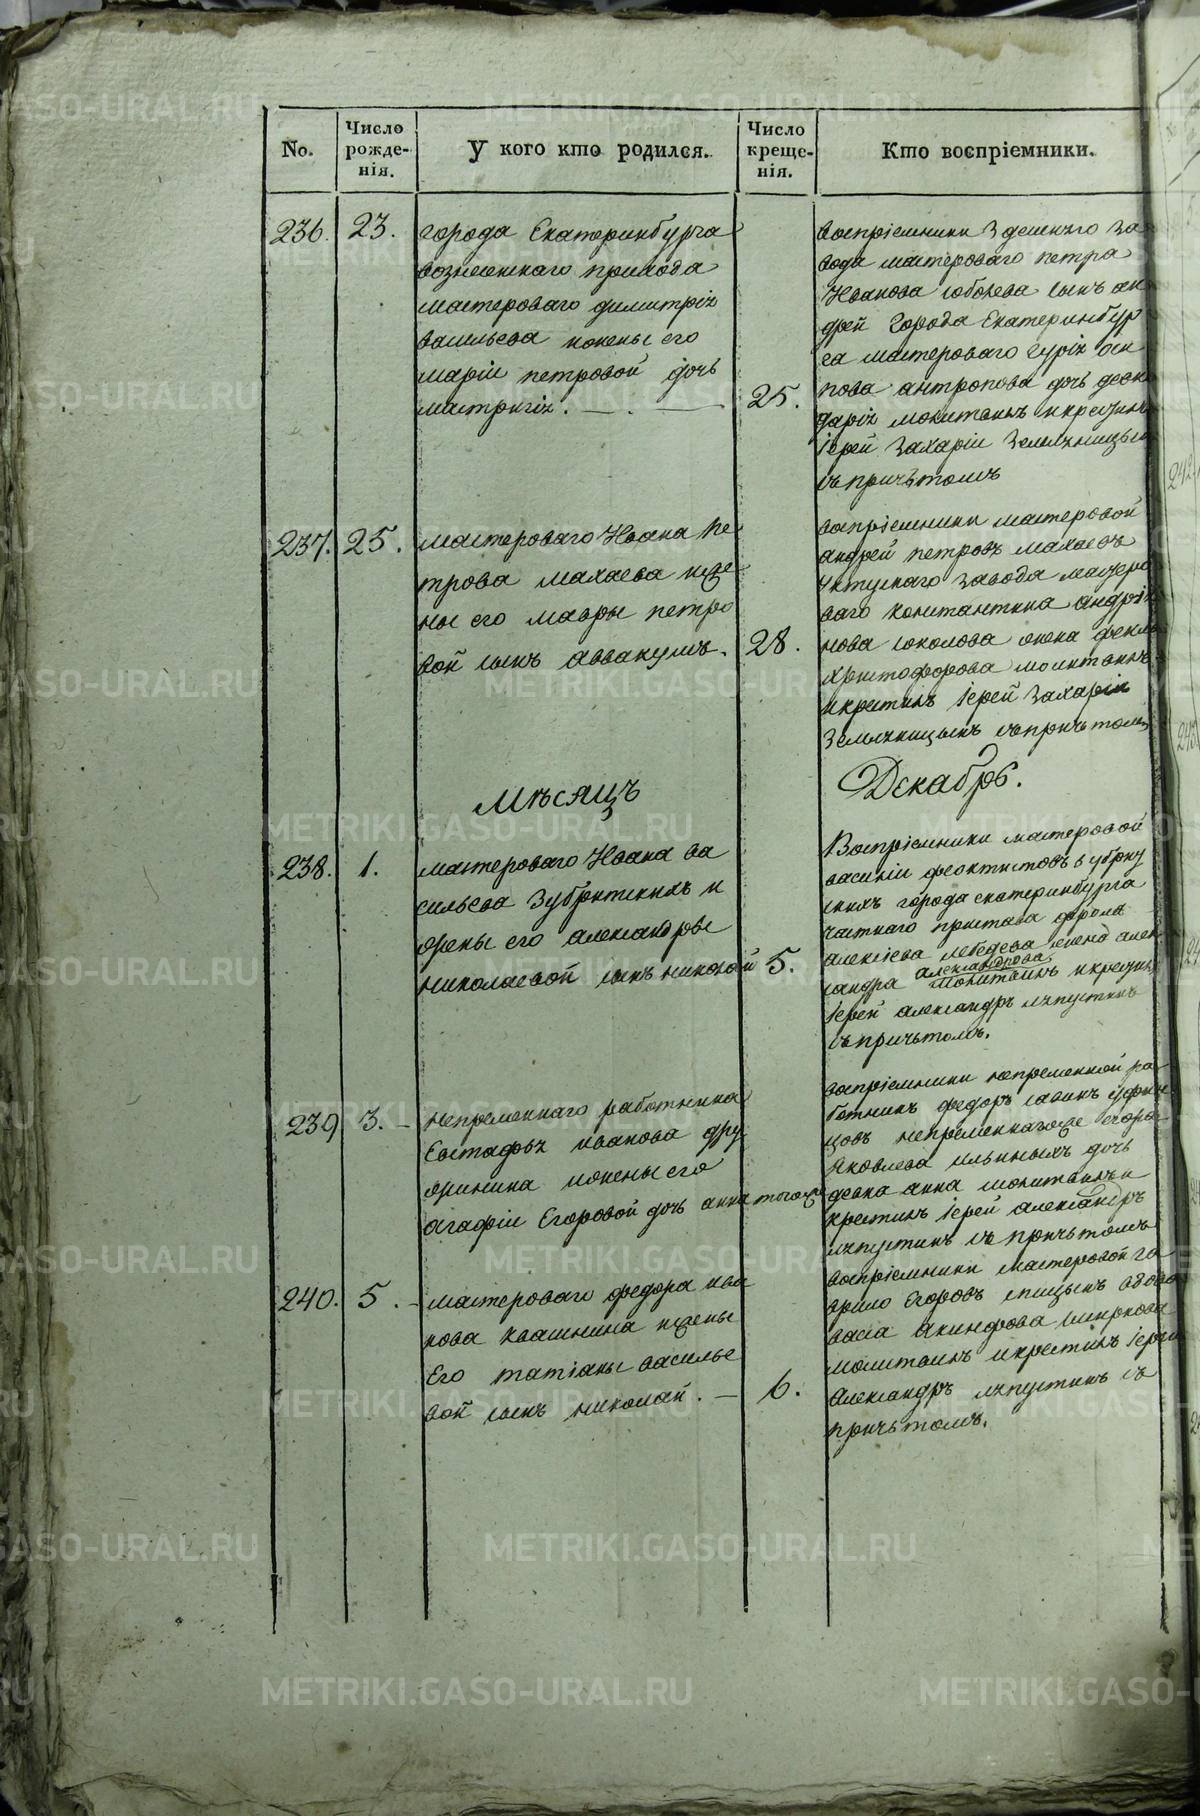 No.
Число рожде-нія.
У кого кто родился.
Число креще-нія.
Кто воспріемники.
236.
23.
города Екатеринбурга
вознесенскаго прихода
мастероваго димитрія
васильева ижены его
маріи петровой дочь
25.
воспріемники здешнго за
вода мастероваго петра
Иванова сынъ ан
дрей Города Екатеринбур
га мастероваго гурія оси
пова антропова дочь
дарія молитвилъ икрестилъ
іерей Захаріи Земляницынъ
съпричьтомъ
237.
25.
мастероваго Ивана Пе
трова махаева иже
ны его мавры петро
вой сынъ аввакумъ.
28.
воспріемники мастеровой
андрей петровъ махаевъ
уктускаго завода мастеро
ваго константина андрія
нова соколова жена фекла
христофорова молитвилъ
икрестилъ іерей Захаріи
Земляницынъ съпричьтомъ
Мѣсяцъ
Декабрь.
238.
1.
мастероваго Ивана ва
сильева Зубритскихъ и
жены его александры
николаевой сынъ николай
5.
Воспріемники мастеровой
василіи феоктистовъ зубриц
кихъ города екатеринбурга
частнаго пристава фрола
алексіева лебедева жена алек
сандра александрова молитвилъ икрестилъ
іерей александръ лапустинъ
съпричьтомъ.
239
3.
непременнаго работника
Евстафья иванова дру
жинина ижены его
агафіи Егоровой дочь анна
тогоже
воспріемники непременной ра
ботникъ федоръ савинъ
непременнагоже егора
Яковлева ильиныхъ дочь
девка анна молитвилъ и
крестилъ іерей александръ
лапустинъ съ причьтомъ
240.
5.
мастероваго федора ива
нова квашнина ижены
Его татіаны василье
вой сынъ николай.
6.
воспріемники мастеровой га
врило Егоровъ вдова
васса акинфова смирнова
молитвилъ икрестилъ іерей
Александръ лапустинъ съ
причьтомъ.
METRIKI.GASO-URAL.RU